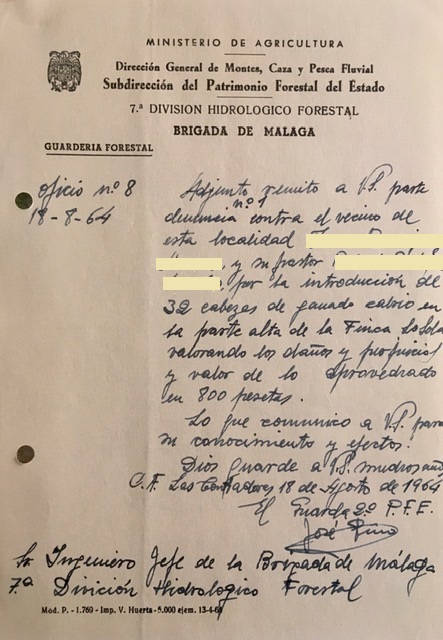 MINISTERIO DE AGRICULTURA
Dirección General de Montes, Caza y Pesca Fluvial
Subdirección del Patrimonio Forestal del Estado
7.ª DIVISION HIDROLOGICO FORESTAL
BRIGADA DE MALAGA
GUARDERIA FORESTAL
Oficio n.º 8
18-8-64
Adjunto remito a V.S. parte
denuncia n.º 1 contra el vecino de
esta localidad
y su pastor
por la introducción de
32 cabezas de ganado cabrio en
la parte alta de la Finca
valorando los daños y perjuicios
y valor de lo aprovechado
en 800 pesetas.
Lo que comunico a V.S. para
su conocimiento y efectos.
Dios guarde a V.S. muchos años
C.F. Las Contadoras 18 de Agosto de 1964
El Guarda 2º P.F.E.
José Pino
Sr Ingeniero Jefe de la Brigada de Málaga
7.ª División Hidrologico Forestal
Mod. P. - 1.769 - Imp. V. Huerta - 5.000 ejem. 13-4-60